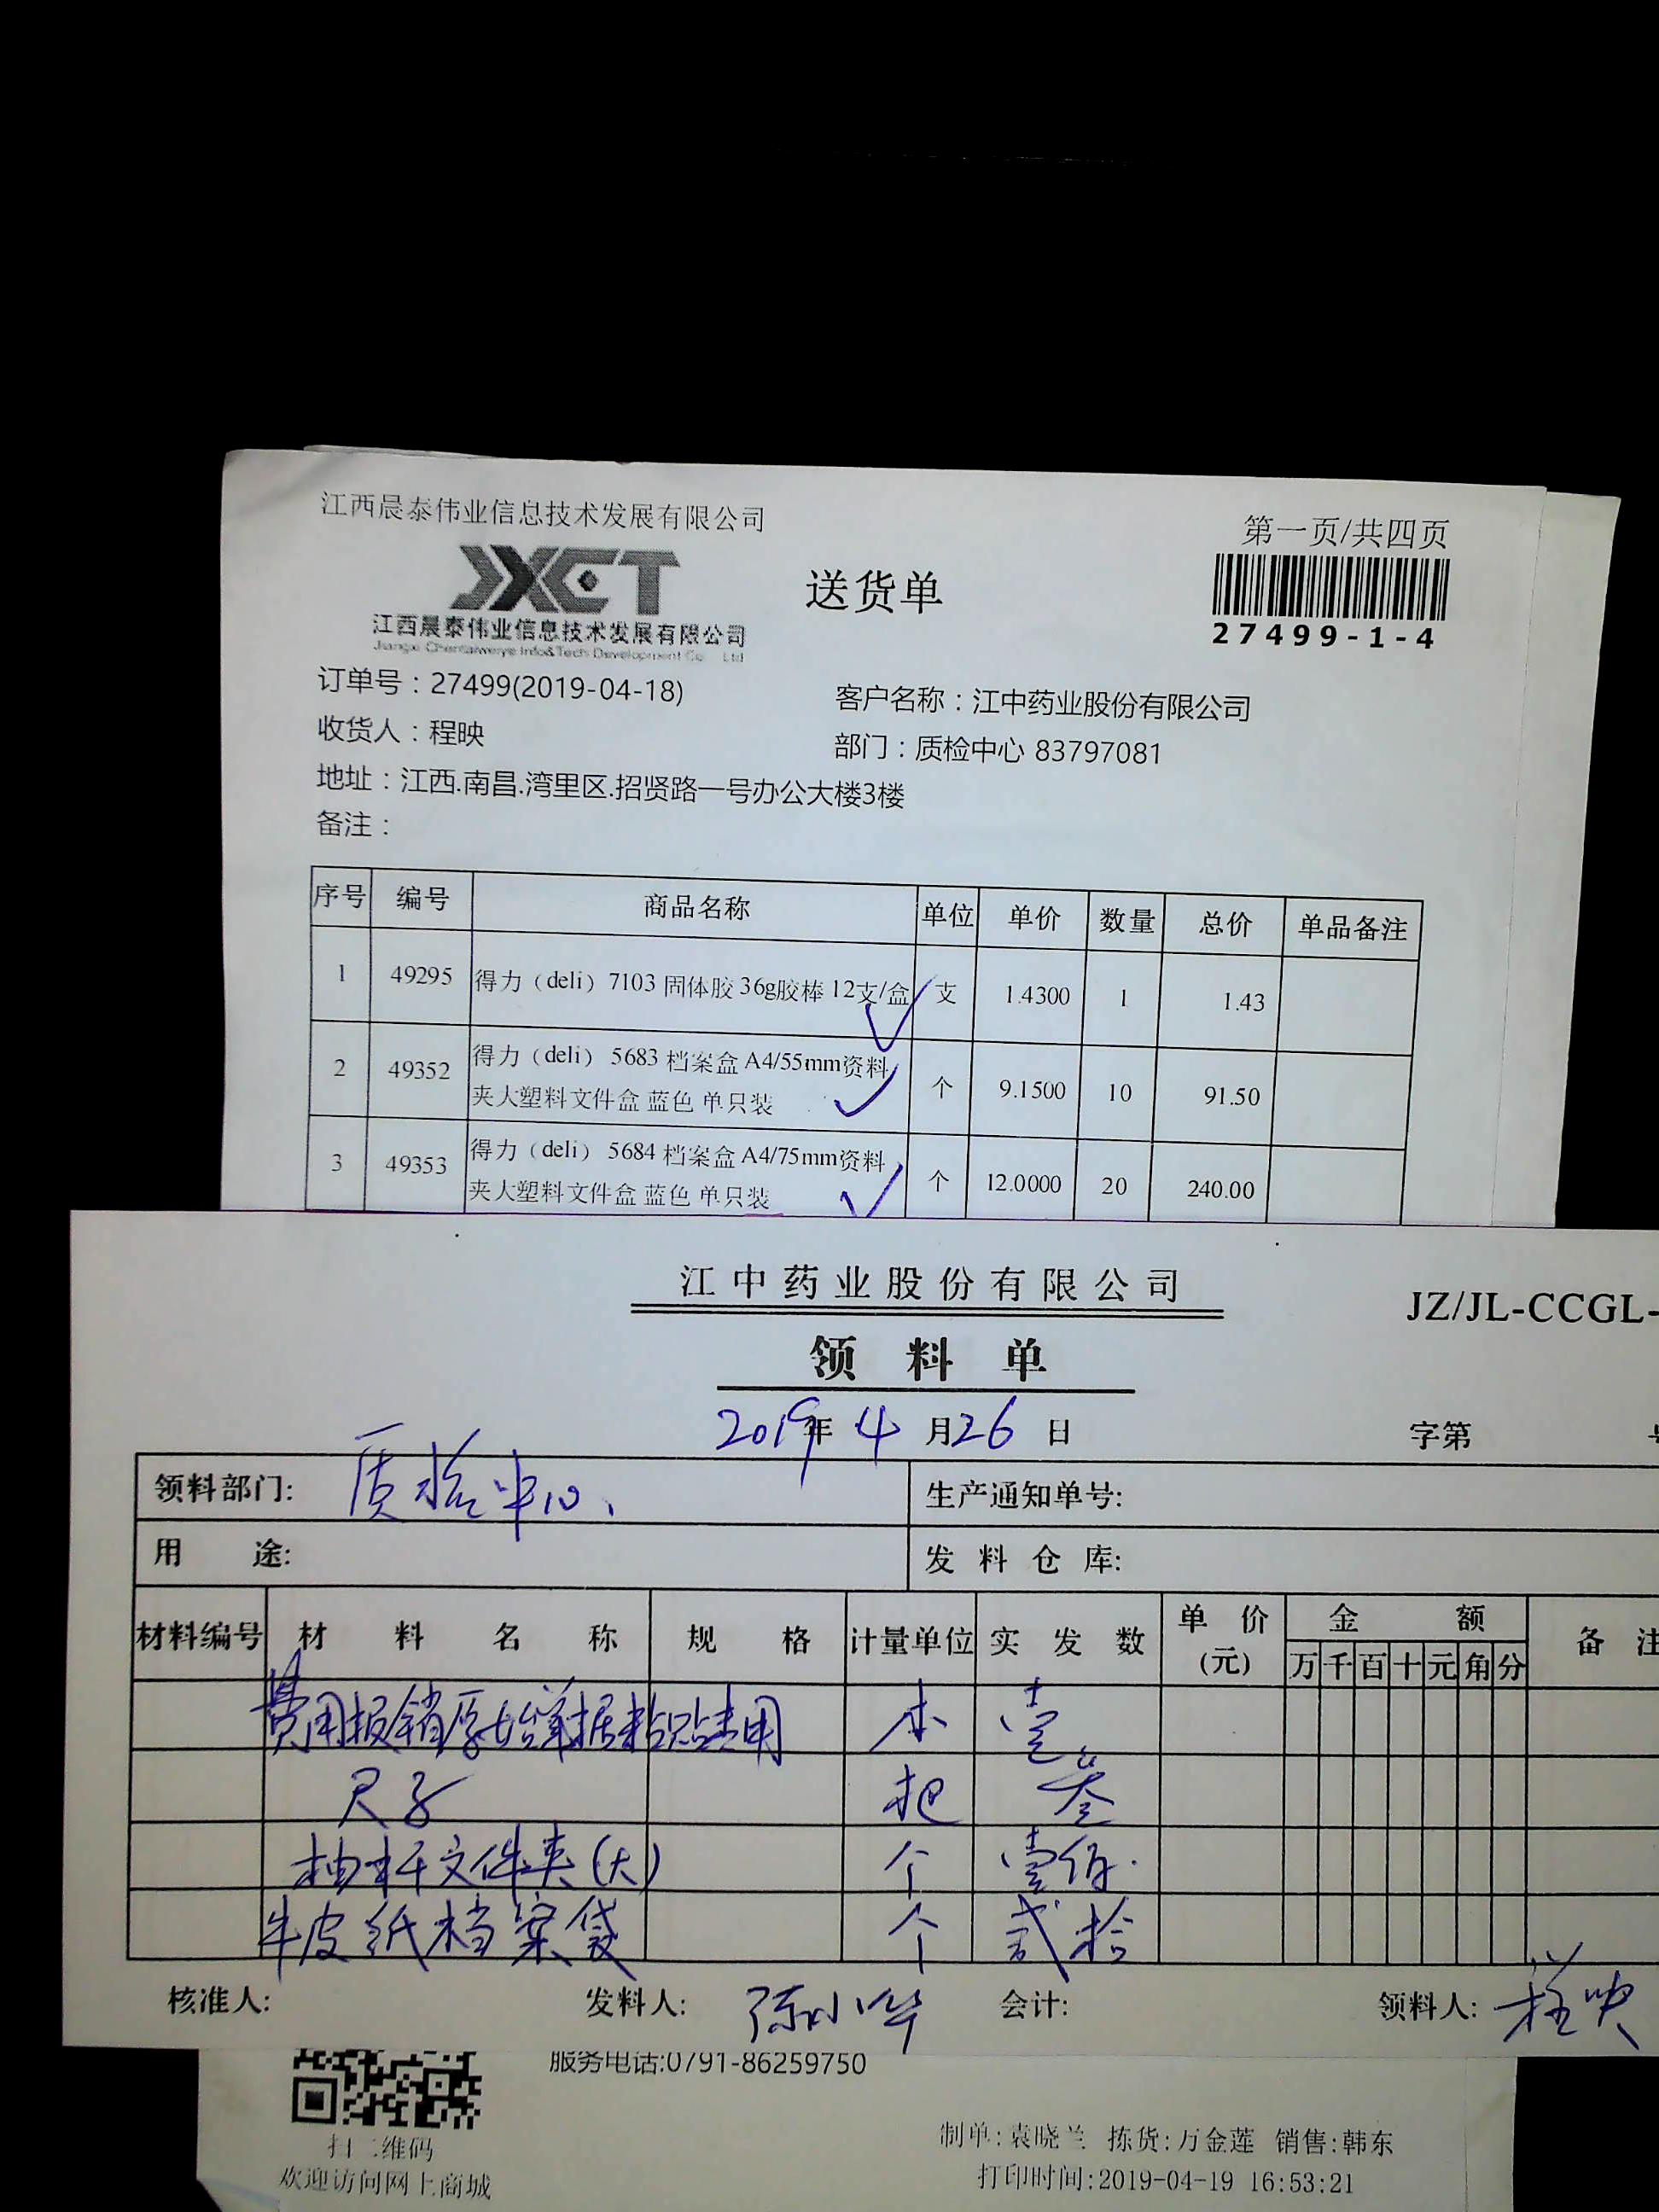 江西晨泰伟业信息技术发展有限公司
第一页/共四页
JXCT
送货单
江西晨泰伟业信息技术发展有限公司
Jiangxi Chentaiweiye Info&Tech Development Co., Ltd
27499-1-4
订单号：27499(2019-04-18)
客户名称：江中药业股份有限公司
收货人：程映
部门：质检中心 83797081
地址：江西.南昌.湾里区.招贤路一号办公大楼3楼
备注：
序号 编号 商品名称 单位 单价 数量 总价 单品备注
1 49295 得力（deli）7103 固体胶 36g胶棒 12支/盒 支 1.4300 1 1.43
2 49352 得力（deli） 5683 档案盒 A4/55mm资料 个 9.1500 10 91.50
夹大塑料文件盒 蓝色 单只装
3 49353 得力（deli） 5684 档案盒 A4/75mm资料 个 12.0000 20 240.00
夹大塑料文件盒 蓝色 单只装
江中药业股份有限公司
JZ/JL-CCGL-
领料单
2019年 4 月26 日
字第
领料部门: 质检中心、
生产通知单号:
用途:
发料仓库:
材料编号 材料名称 规格 计量单位 实发数 单价 金额 备注
(元) 万 千 百 十 元 角 分
费用报销原始单据粘贴专用 本 壹
尺子 把 叁
抽杆文件夹(大) 个 壹佰
牛皮纸档案袋 个 贰拾
核准人:
发料人: 陈小华
会计:
领料人: 程映
服务电话:0791-86259750
扫二维码
欢迎访问网上商城
制单:袁晓兰 拣货:万金莲 销售:韩东
打印时间:2019-04-19 16:53:21